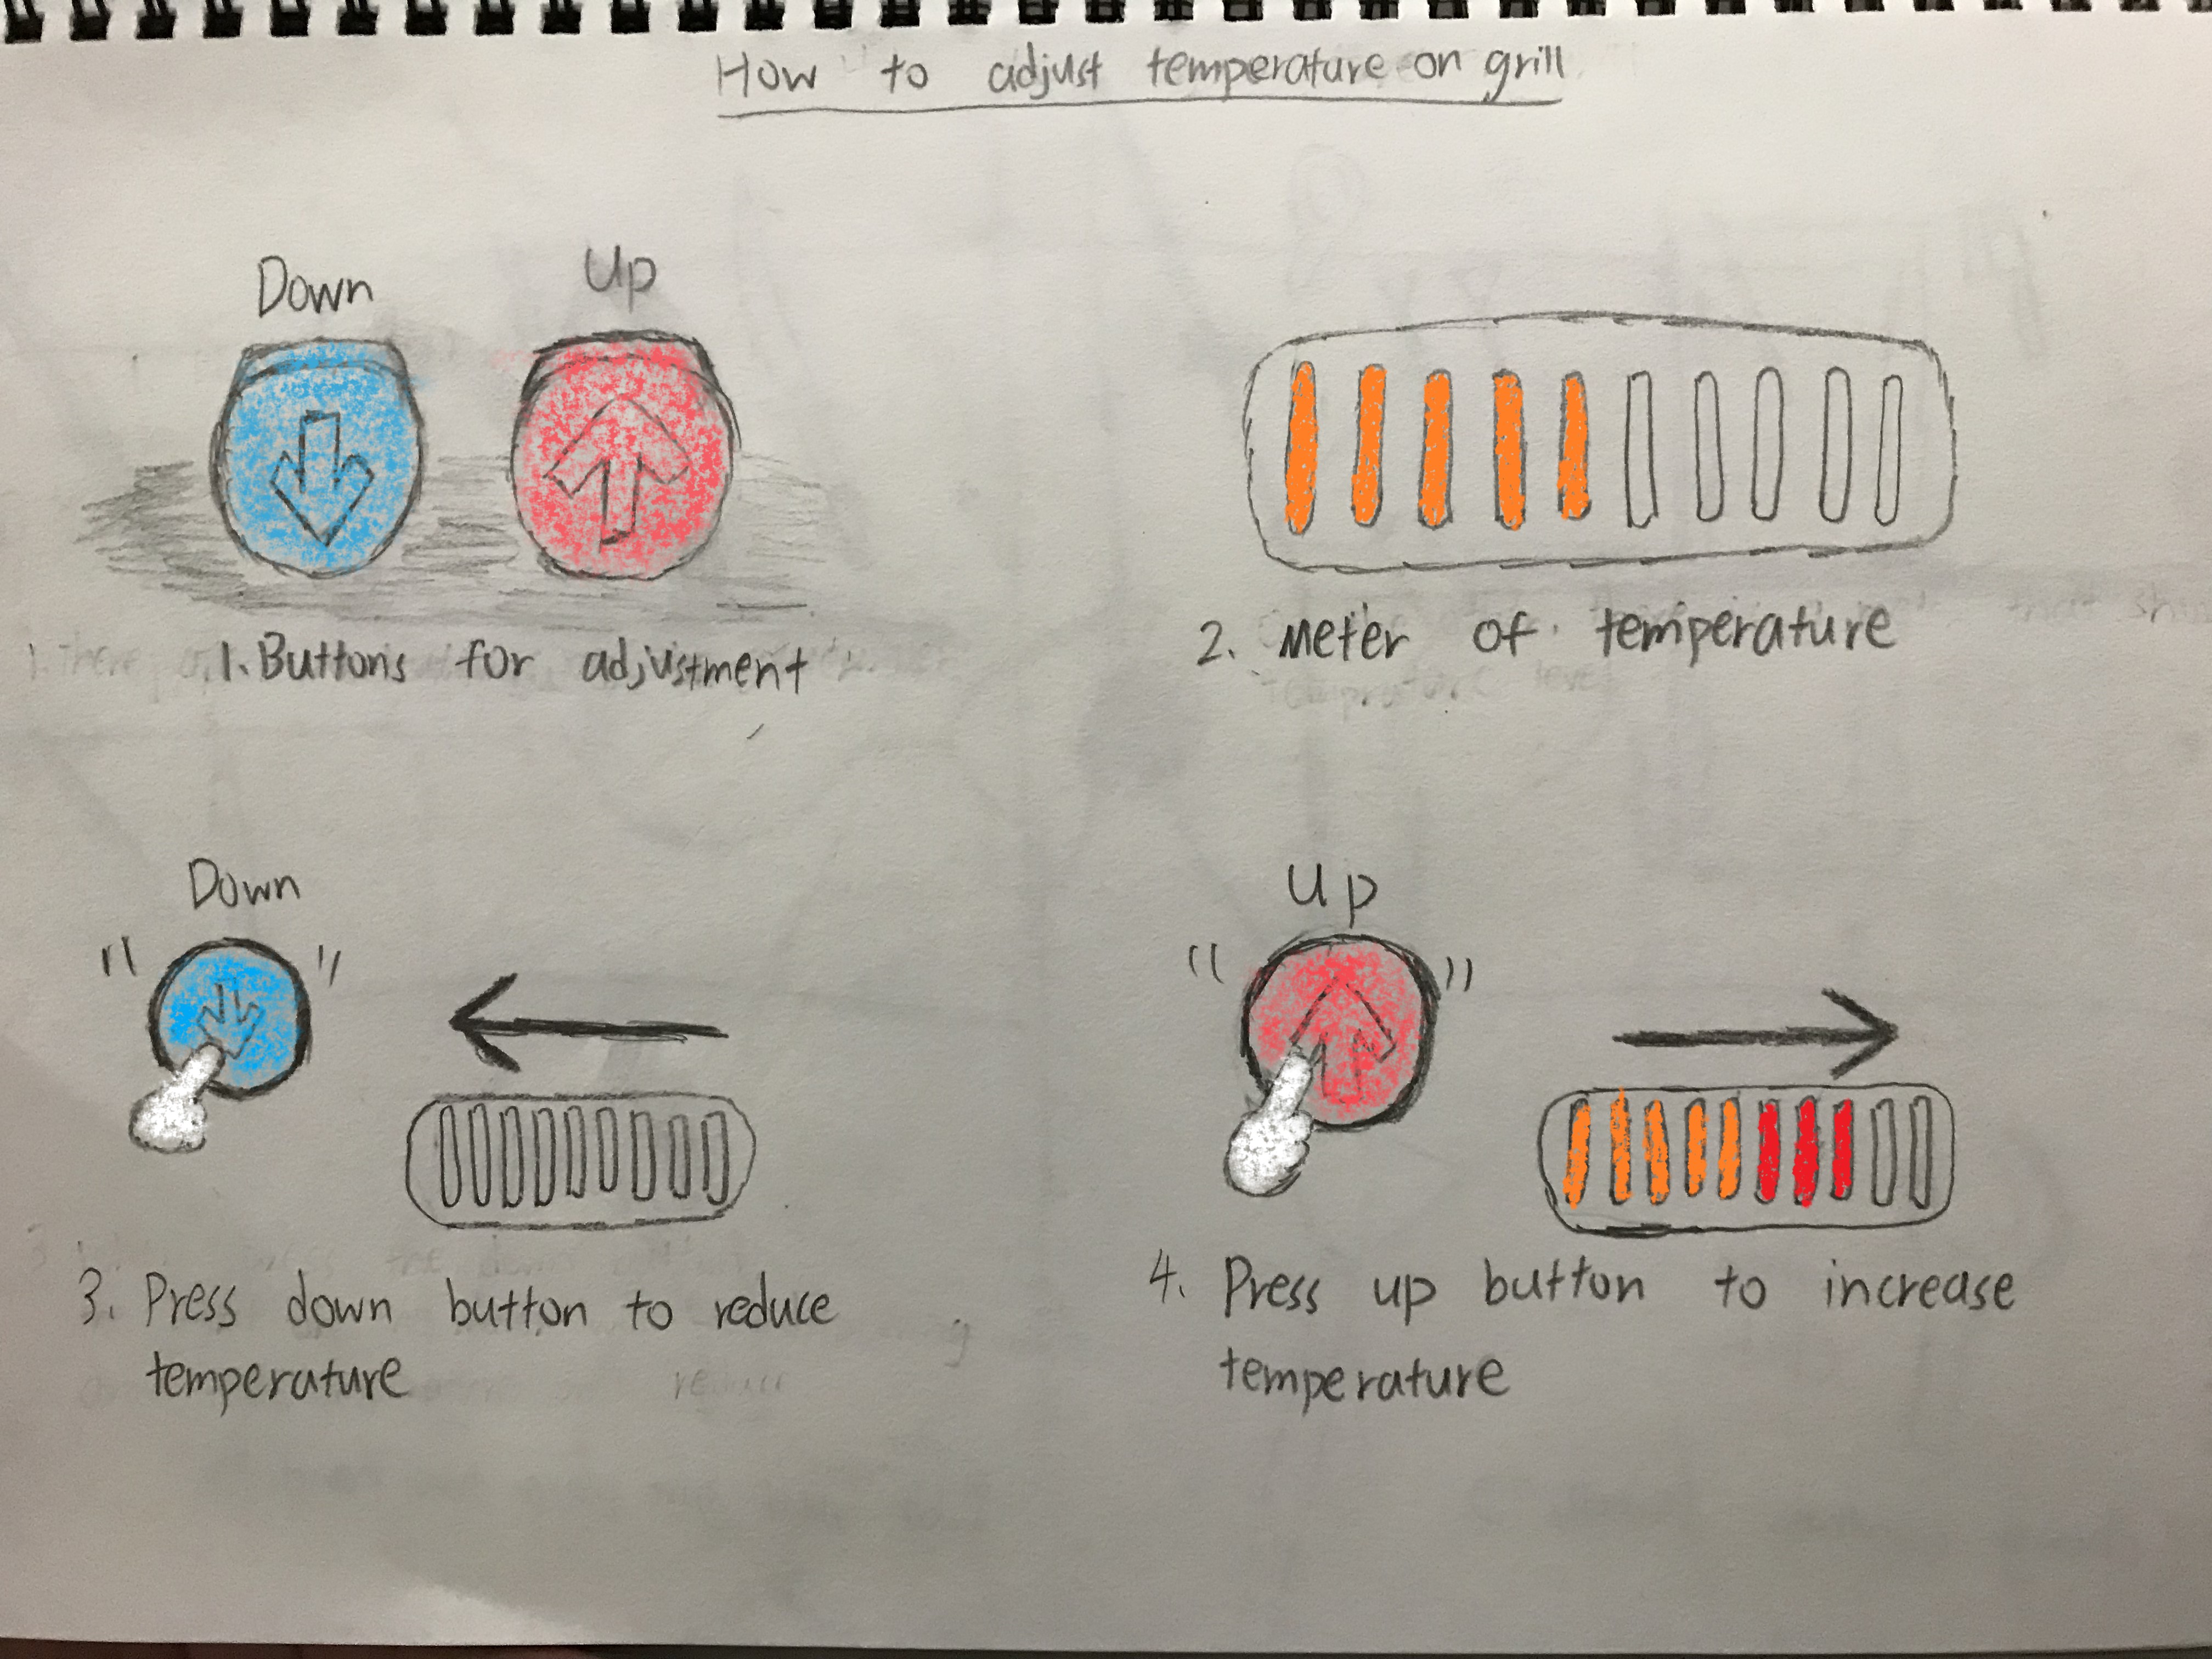 How to adjust temperature on grill
Down
Up
1. Buttons for adjustment
2. Meter of temperature
Down
Up
3. Press down button to reduce
temperature
4. Press up button to increase
temperature